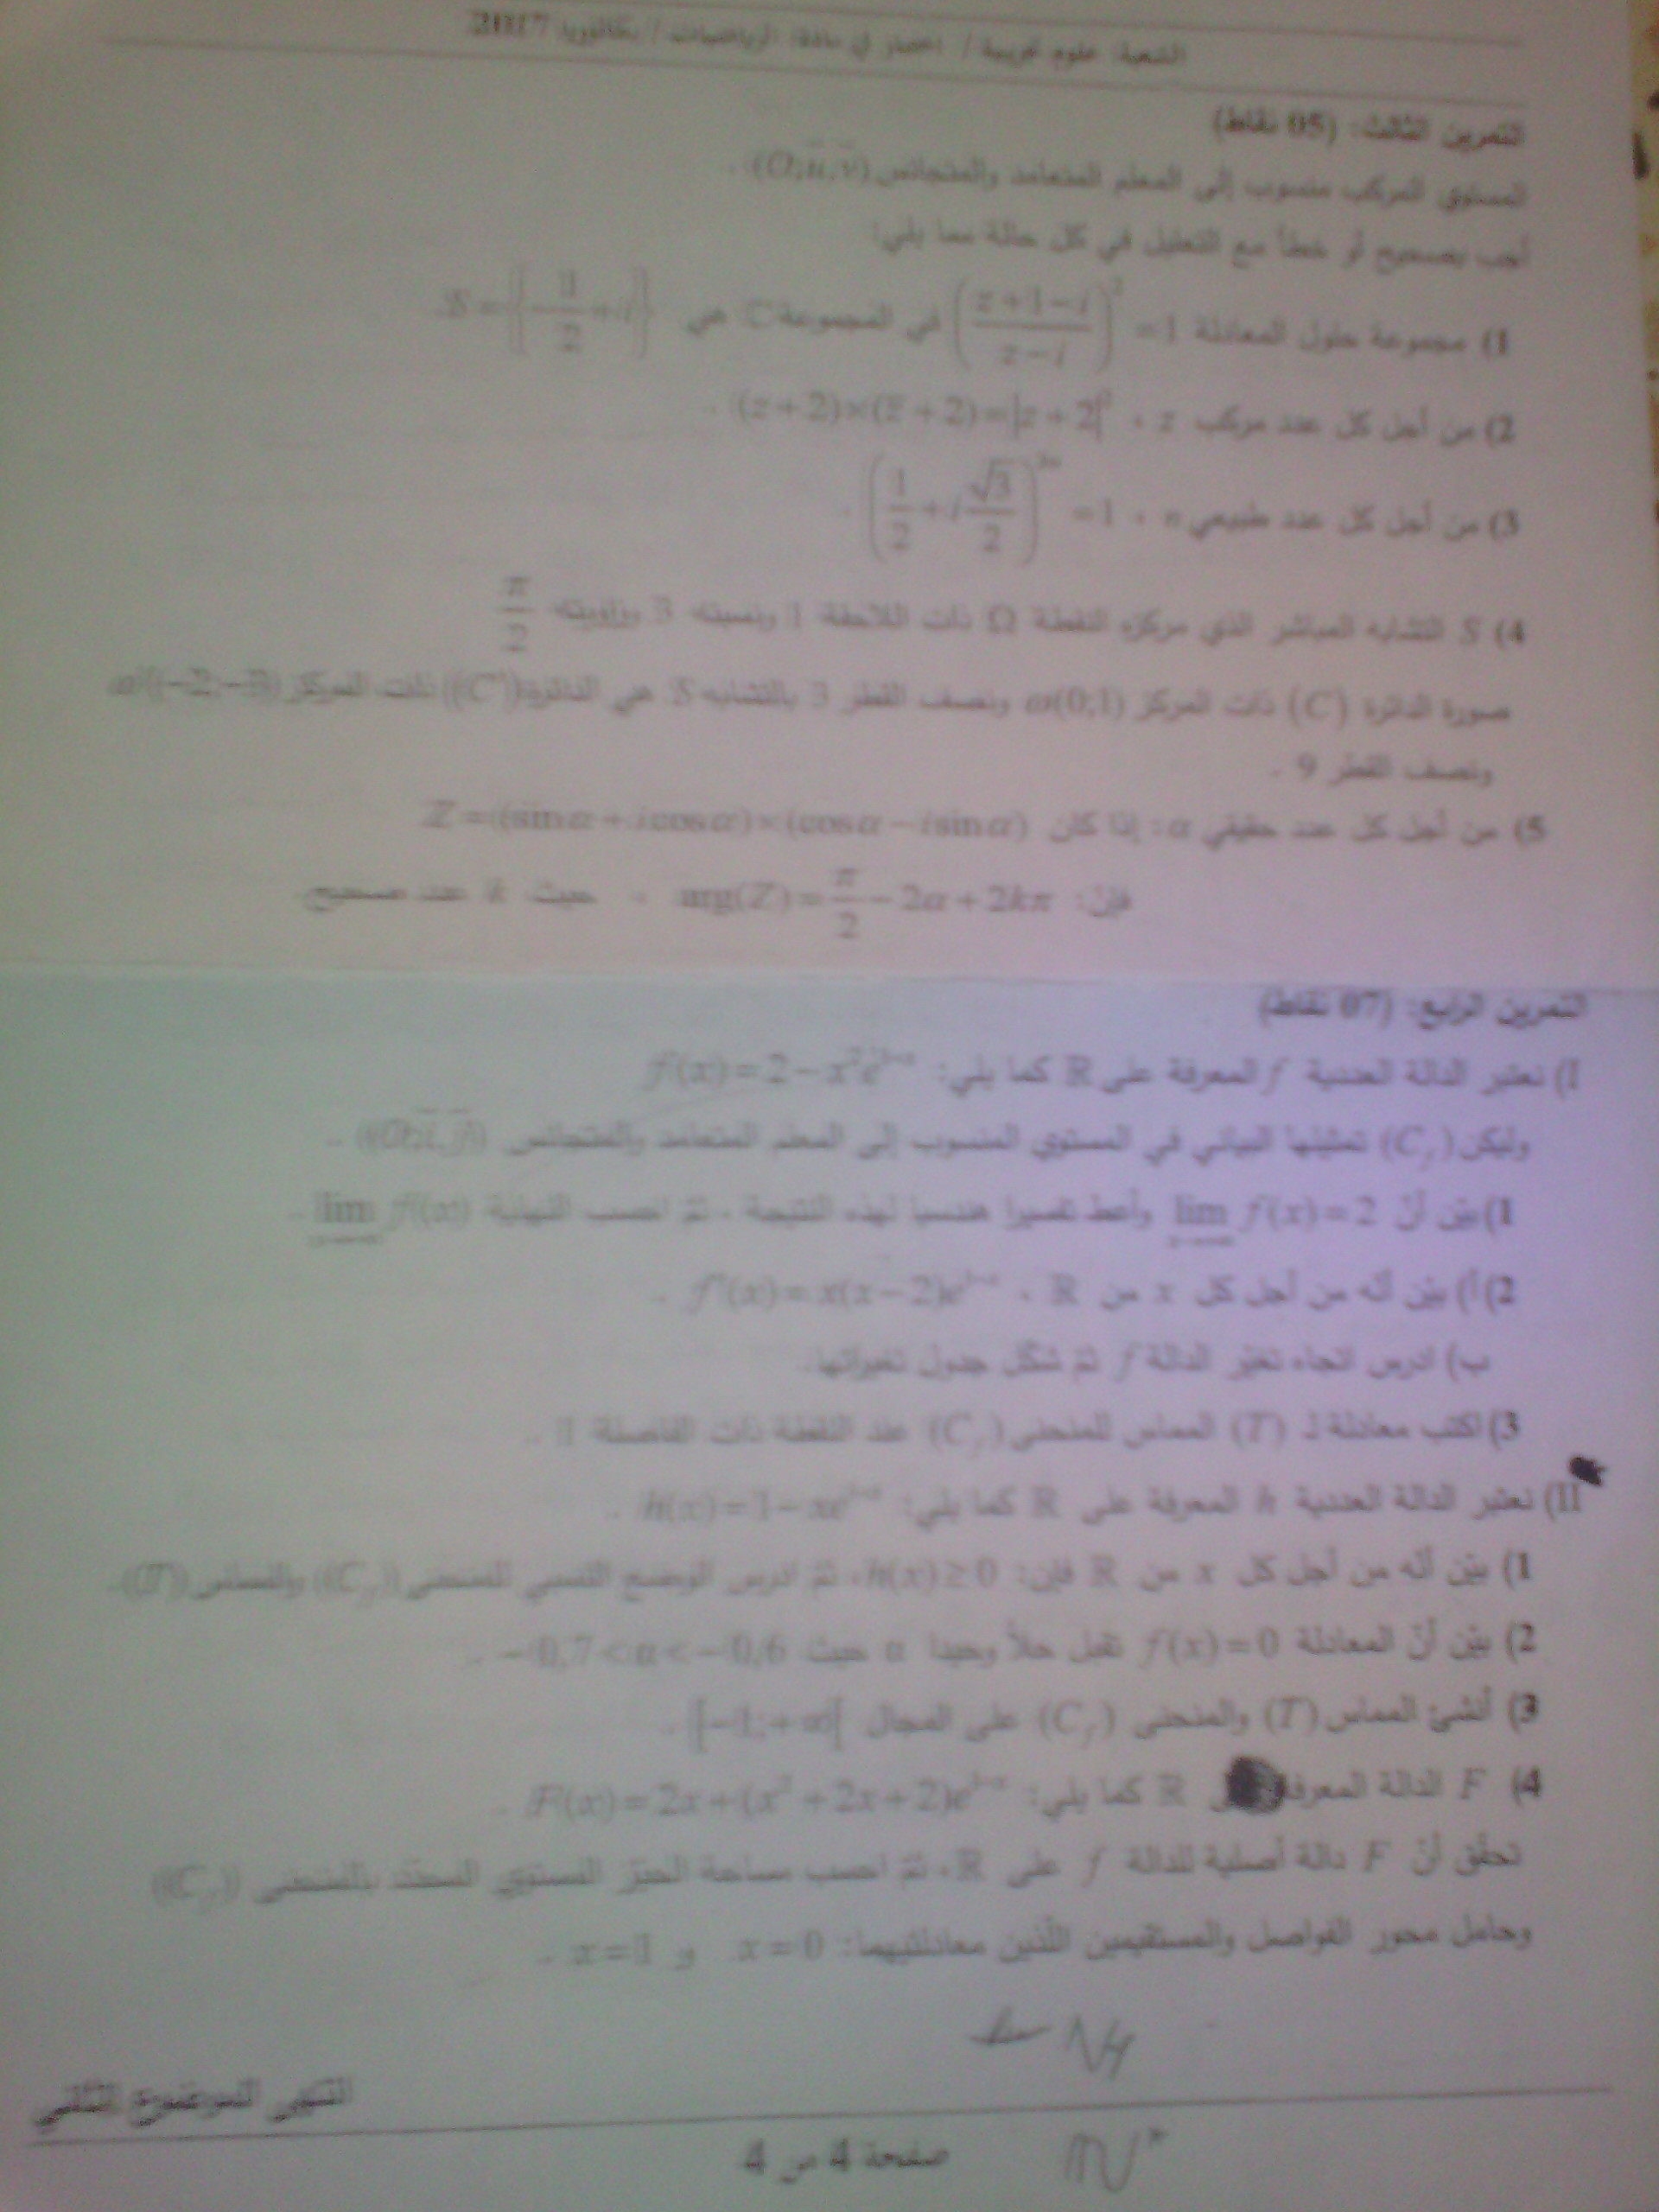 الشعبة: علوم تجريبية / اختبار في مادة: الرياضيات / بكالوريا 2017
التمرين الثالث: (05 نقاط)
المستوي المركب منسوب إلى المعلم المتعامد والمتجانس (O;u,v) .
أجب بصحيح أو خطأ مع التعليل في كل حالة مما يلي:
1) مجموعة حلول المعادلة ((z+1-i)/(z-i))² = 1 في المجموعة ℂ هي S = {-1/2 + i}
2) من أجل كل عدد مركب z ، (z+2)×(z̄+2)=|z+2|² .
3) من أجل كل عدد طبيعي n ، (1/2 + i√3/2)³ⁿ = 1 .
4) S التشابه المباشر الذي مركزه النقطة Ω ذات اللاحقة 1 ونسبته 3 وزاويته π/2
صورة الدائرة (C) ذات المركز ω(0;1) ونصف القطر 3 بالتشابه S هي الدائرة (C') ذات المركز ω'(-2;-3)
ونصف القطر 9 .
5) من أجل كل عدد حقيقي α : إذا كان Z = (sin α + i cos α)×(cos α - i sin α)
فإنّ: arg(Z) = π/2 - 2α + 2kπ ، حيث k عدد صحيح.
التمرين الرابع: (07 نقاط)
I) نعتبر الدالة العددية f المعرفة على ℝ كما يلي: f(x) = 2 - x²e¹⁻ˣ
وليكن (C_f) تمثيلها البياني في المستوي المنسوب إلى المعلم المتعامد والمتجانس (O;i,j) .
1) بيّن أنّ lim f(x) = 2 وأعط تفسيرا هندسيا لهذه النتيجة ، ثمّ احسب النهاية lim f(x) .
2) أ) بيّن أنّه من أجل كل x من ℝ ، f'(x) = x(x-2)e¹⁻ˣ .
ب) ادرس اتجاه تغيّر الدالة f ثمّ شكّل جدول تغيراتها.
3) اكتب معادلة لـ (T) المماس للمنحنى (C_f) عند النقطة ذات الفاصلة 1 .
II) نعتبر الدالة العددية h المعرفة على ℝ كما يلي: h(x) = 1 - xe¹⁻ˣ .
1) بيّن أنّه من أجل كل x من ℝ فإن: h(x) ≥ 0، ثمّ ادرس الوضع النسبي للمنحنى (C_f) والمماس (T).
2) بيّن أنّ المعادلة f(x) = 0 تقبل حلاّ وحيدا α حيث -0,7 < α < -0,6 .
3) أنشئ المماس (T) والمنحنى (C_f) على المجال [-1;+∞[ .
4) F الدالة المعرفة ℝ كما يلي: F(x) = 2x + (x² + 2x + 2)e¹⁻ˣ .
تحقّق أنّ F دالة أصلية للدالة f على ℝ، ثمّ احسب مساحة الحيّز المستوي المحدّد بالمنحنى (C_f)
وحامل محور الفواصل والمستقيمين اللّذين معادلتيهما: x = 0 و x = 1 .
انتهى الموضوع الثاني
صفحة 4 من 4